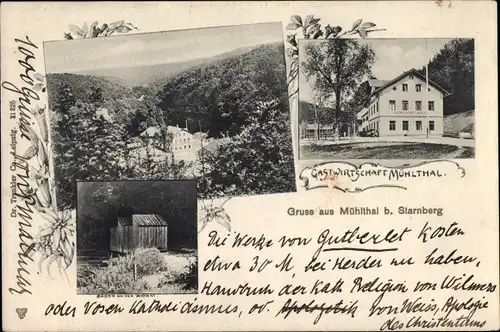 Gruss aus Mühlthal b. Starnberg
GASTWIRTSCHAFT MÜHLTHAL.
BÄDER AN DER WÜRM
Dr. Trenkler Co., Leipzig.
Die Werke von Gutberlet kosten
etwa 30 M, bei Herder neu haben,
Handbuch der kath Religion von Wilmers
oder Vosen Katholicismus, od. Apologetik von Weiss, Apologie
des Christentums